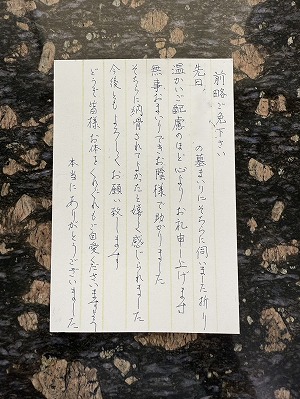 前略ご免下さい
先日、　の墓まいりにそちらに伺いました折り
温かいご配慮のほど心よりお礼申し上げます
無事おまいりできお陰様で助かりました
そちらに納骨されてよかったと嬉しく感じられました
今後ともよろしくお願い致します
どうぞ皆様お体をくれぐれもご自愛くださいますよう
本当にありがとうございました